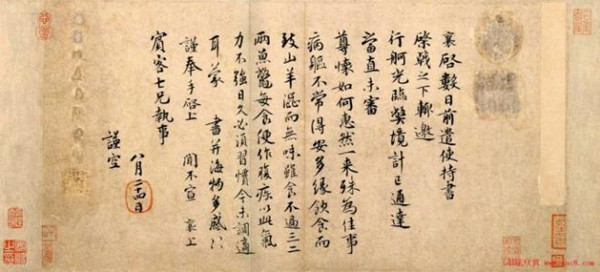 襄啓數日前遣使持書
棨戟之下輒邀
行舸光臨獘境計已通達
當直未審
尊懷如何惠然一來殊為佳事
病軀不常得安多緣飲食而
致山羊澀而無味雖食不過三二
兩魚鱉每食便作腹疾以此氣
力不強日久必須習慣今未調適
耳蒙 書并海物多感〻
謹奉手啓上 聞不宣 襄上
賓客七兄執事
八月廿四日
謹空